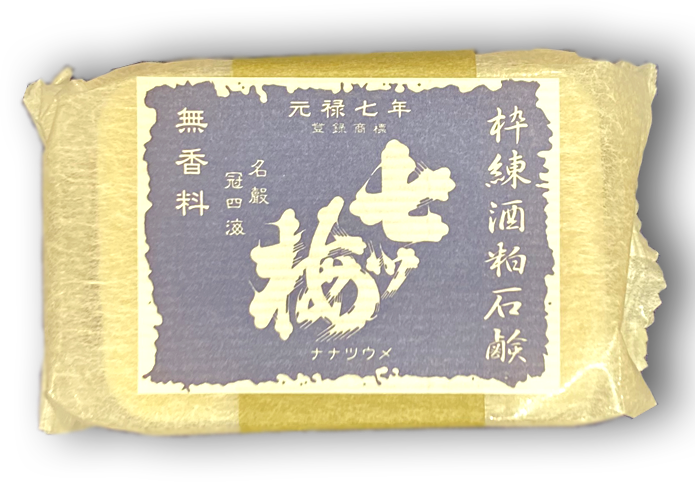 元禄七年
登録商標
枠練酒粕石鹸
七ッ梅
ナナツウメ
名嚴
冠四海
無香料